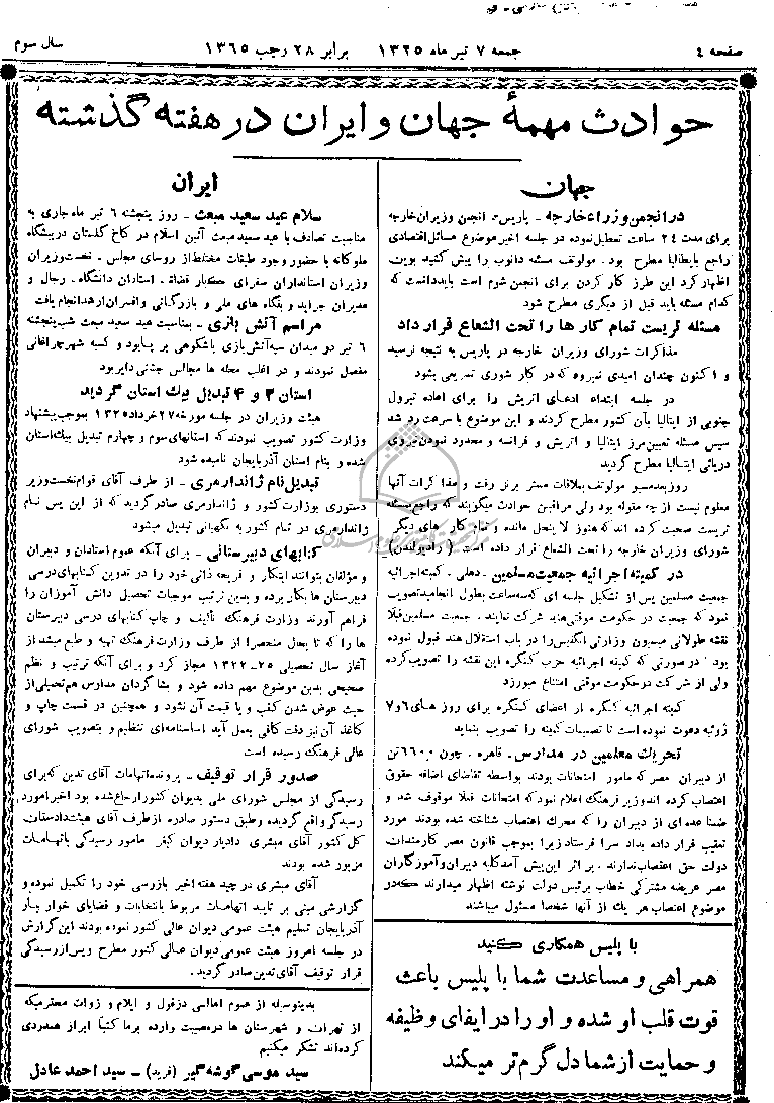 صفحه ٤
جمعه ٧ تیر ماه ١٣٢٥ برابر ٢٨ رجب ١٣٦٥
سال سوم
حوادث مهمهٔ جهان و ایران در هفته گذشته
جهان
در انجمن وزراء خارجه - پاریس- انجمن وزیران خارجه
برای مدت ٢٤ ساعت تعطیل نموده در جلسه اخیر موضوع مسائل اقتصادی
راجع بایطالیا مطرح بود . مولوتف مسئله دانوب را پیش کشید بوین
اظهار کرد این طرز کار کردن برای انجمن شوم است باید دانست که
کدام مسئله باید قبل از دیگری مطرح شود
مسئله تریست تمام کار ها را تحت الشعاع قرار داد
مذاکرات شورای وزیران خارجه در پاریس به نتیجه نرسید
و اکنون چندان امیدی نمیرود که در کار شوری تسریعی بشود
در جلسه ابتداء ادعای اتریش را برای اعاده تیرول
جنوبی از ایتالیا بآن کشور مطرح کردند و این موضوع با سرعت رد شد
سپس مسئله تعیین مرز ایتالیا و اتریش و فرانسه و محدود نمودن نیروی
دریائی ایتالیا مطرح گردید
روز بعد مسیو مولوتف بملاقات مستر برنز رفت و مذاکرات آنها
معلوم نیست از چه مقوله بود ولی مراقبین حوادث میگویند که راجع بمسئله
تریست صحبت کرده اند که هنوز لاینحل مانده و تمام کار های دیگر
شورای وزیران خارجه را تحت الشعاع قرار داده است ( رادیو لندن )
در کمیته اجرائیه جمعیت مسلمین - دهلی . کمیته اجرائیه
جمعیت مسلمین پس از تشکیل جلسه ای که سه ساعت بطول انجامید تصویب
نمود که جمعیت در حکومت موقتی هند شرکت نمایند . جمعیت مسلمین قبلا
نقشه طولانی میسیون وزارتی انگلیس را در باب استقلال هند قبول نموده
بود . در صورتی که کمیته اجرائیه حزب کنگره این نقشه را تصویب کرده
ولی از شرکت در حکومت موقتی امتناع میورزد
کمیته اجرائیه کنگره از اعضای کنگره برای روز های ٦ و ٧
ژوئیه دعوت نموده است تا تصمیمات کمیته را تصویب نماید
تحریک معلمین در مدارس - قاهره . چون ٦٦٠٠ تن
از دبیران مصر که مامور امتحانات بودند بواسطه تقاضای اضافه حقوق
اعتصاب کرده اند وزیر فرهنگ اعلام نمود که امتحانات فعلا موقوف شد و
ضمنا عده ای از دبیران را که محرک اعتصاب شناخته شده بودند مورد
تعقیب قرار داده بداد سرا فرستاد زیرا بموجب قانون مصر کارمندان
دولت حق اعتصاب ندارند . بر اثر این پیش آمد کلیه دبیران و آموزگاران
مصر عریضه مشترکی خطاب برئیس دولت نوشته اظهار میدارند که در
موضوع اعتصاب هر یک از آنها شخصا مسئول میباشند
با پلیس همکاری کنید
همراهی و مساعدت شما با پلیس باعث
قوت قلب او شده و او را در ایفای وظیفه
و حمایت از شما دل گرم تر میکند
ایران
سلام عید سعید مبعث - روز پنجشنبه ٦ تیر ماه جاری به
مناسبت تصادف با عید سعید مبعث آئین اسلام در کاخ گلستان در پیشگاه
ملوکانه با حضور وجود طبقات مختلفه از روسای مجلس - نخست وزیران
وزیران استانداران سفرای کبار قضاة . استادان دانشگاه . رجال و
مدیران جراید و بنگاه های ملی و بازرگانی و افسران ارشد انجام یافت
مراسم آتش بازی - بمناسبت عید سعید مبعث شب پنجشنبه
٦ تیر دو میدان سپه آتش بازی باشکوهی بر پا بود و کسبه شهر چراغانی
مفصل نمودند و در اغلب محله ها مجالس جشنی دایر بود
استان ٣ و ٤ تبدیل بیک استان گردید
هیئت وزیران در جلسه مورخه ٢٧ خرداد ١٣٢٥ بموجب پیشنهاد
وزارت کشور تصویب نمودند که استانهای سوم و چهارم تبدیل بیک استان
شده و بنام استان آذربایجان نامیده شود
تبدیل نام ژاندارمری - از طرف آقای قوام نخست وزیر
دستوری بوزارت کشور و ژاندارمری صادر گردید که از این پس نام
ژاندارمری در تمام کشور به نگهبانی تبدیل میشود
کتابهای دبیرستانی - برای آنکه عموم استادان و دبیران
و مؤلفان بتوانند ابتکار و قریحه ذاتی خود را در تدوین کتابهای درسی
دبیرستان ها بکار برده و بدین ترتیب موجبات تحصیل دانش آموزان را
فراهم آورند وزارت فرهنگ تألیف و چاپ کتابهای درسی دبیرستان
ها را که تا بحال منحصرا از طرف وزارت فرهنگ تهیه و طبع میشد از
آغاز سال تحصیلی ٢٥-١٣٢٤ مجاز کرد و برای آنکه ترتیب و نظم
صحیحی بدین موضوع مهم داده شود و بشاگردان مدارس هم تحمیلی از
حیث عوض شدن کتب و یا قیمت آن نشود و همچنین در قسمت چاپ و
کاغذ آن نیز دقت کافی بعمل آید اساسنامه ای تنظیم و بتصویب شورای
عالی فرهنگ رسیده است
صدور قرار توقیف - پرونده اتهامات آقای تدین که برای
رسیدگی از مجلس شورای ملی بدیوان کشور ارجاع شده بود اخیرا مورد
رسیدگی واقع گردیده و طبق دستور صادره از طرف آقای هیئت دادستان
کل کشور آقای مبشری دادیار دیوان کیفر مامور رسیدگی باتهامات
مزبور شده بودند
آقای مبشری در چند هفته اخیر بازرسی خود را تکمیل نموده و
گزارشی مبنی بر تایید اتهامات مربوط بانتخابات و قضایای خوار بار
آذربایجان تسلیم هیئت عمومی دیوان عالی کشور نموده بودند این گزارش
در جلسه امروز هیئت عمومی دیوان عالی کشور مطرح و پس از رسیدگی
قرار توقیف آقای تدین صادر گردید .
بدینوسیله از عموم اهالی دزفول و ایلام و ذوات محترمیکه
از تهران و شهرستان ها در مصیبت وارده بر ما کتباً ابراز همدردی
کرده اند تشکر میکنیم
سید موسی گوشه گیر (فرید) - سید احمد عادل